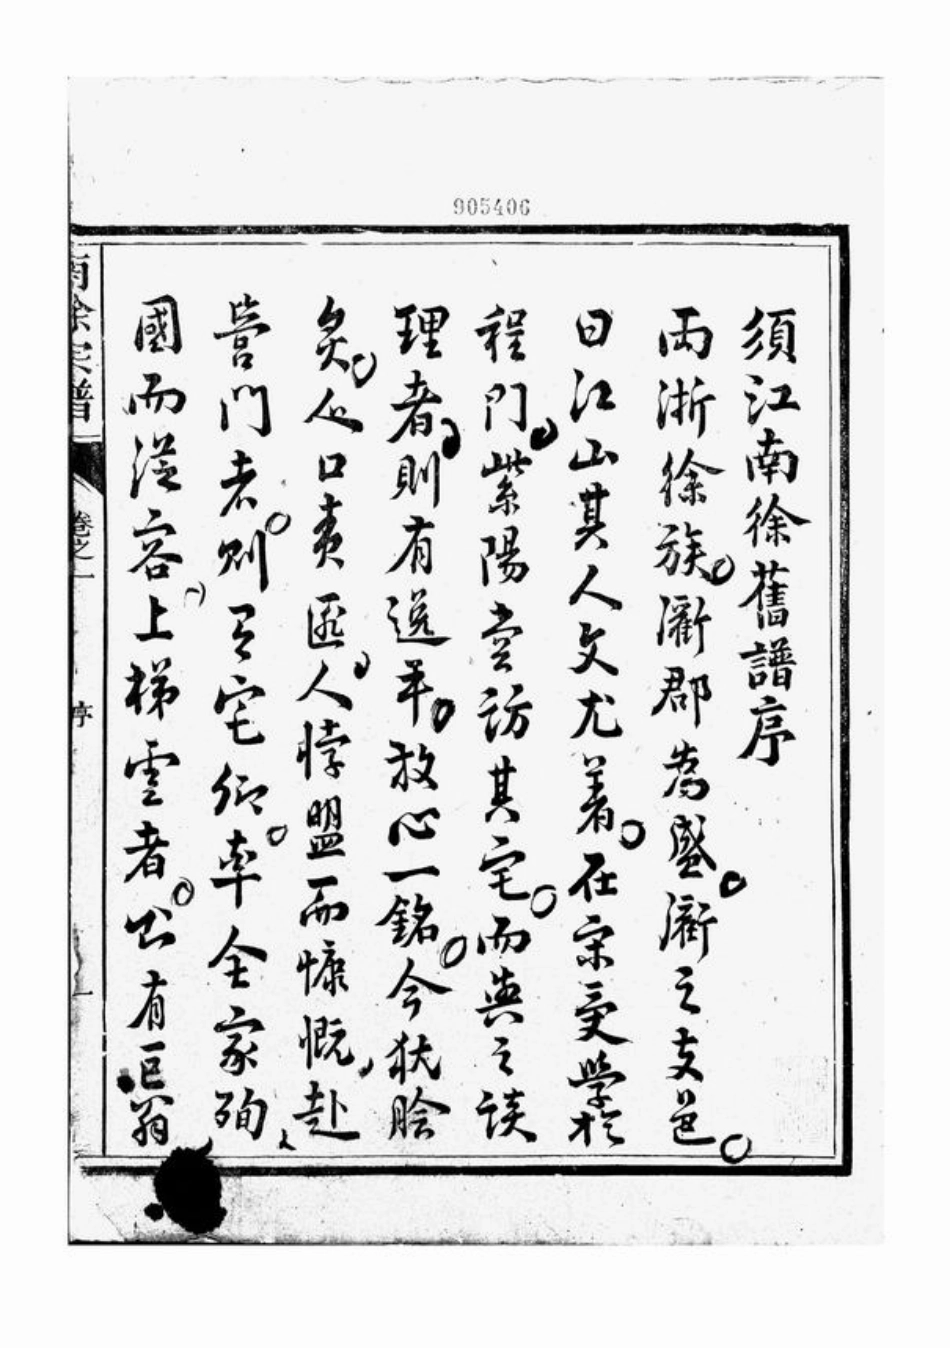 905406
須江南徐舊譜序
兩浙徐族衢郡為盛衢之支邑
曰江山其人文尤著在宋受學於
程門紫陽嘗訪其宅而與之談
理者則有逸平放心一銘今猶膾
炙人口責匪人悖盟而慷慨赴
營門者則有宅卿率全家殉
國而從容上梯雲者公有巨翁
南徐宗譜
卷之一
序
一